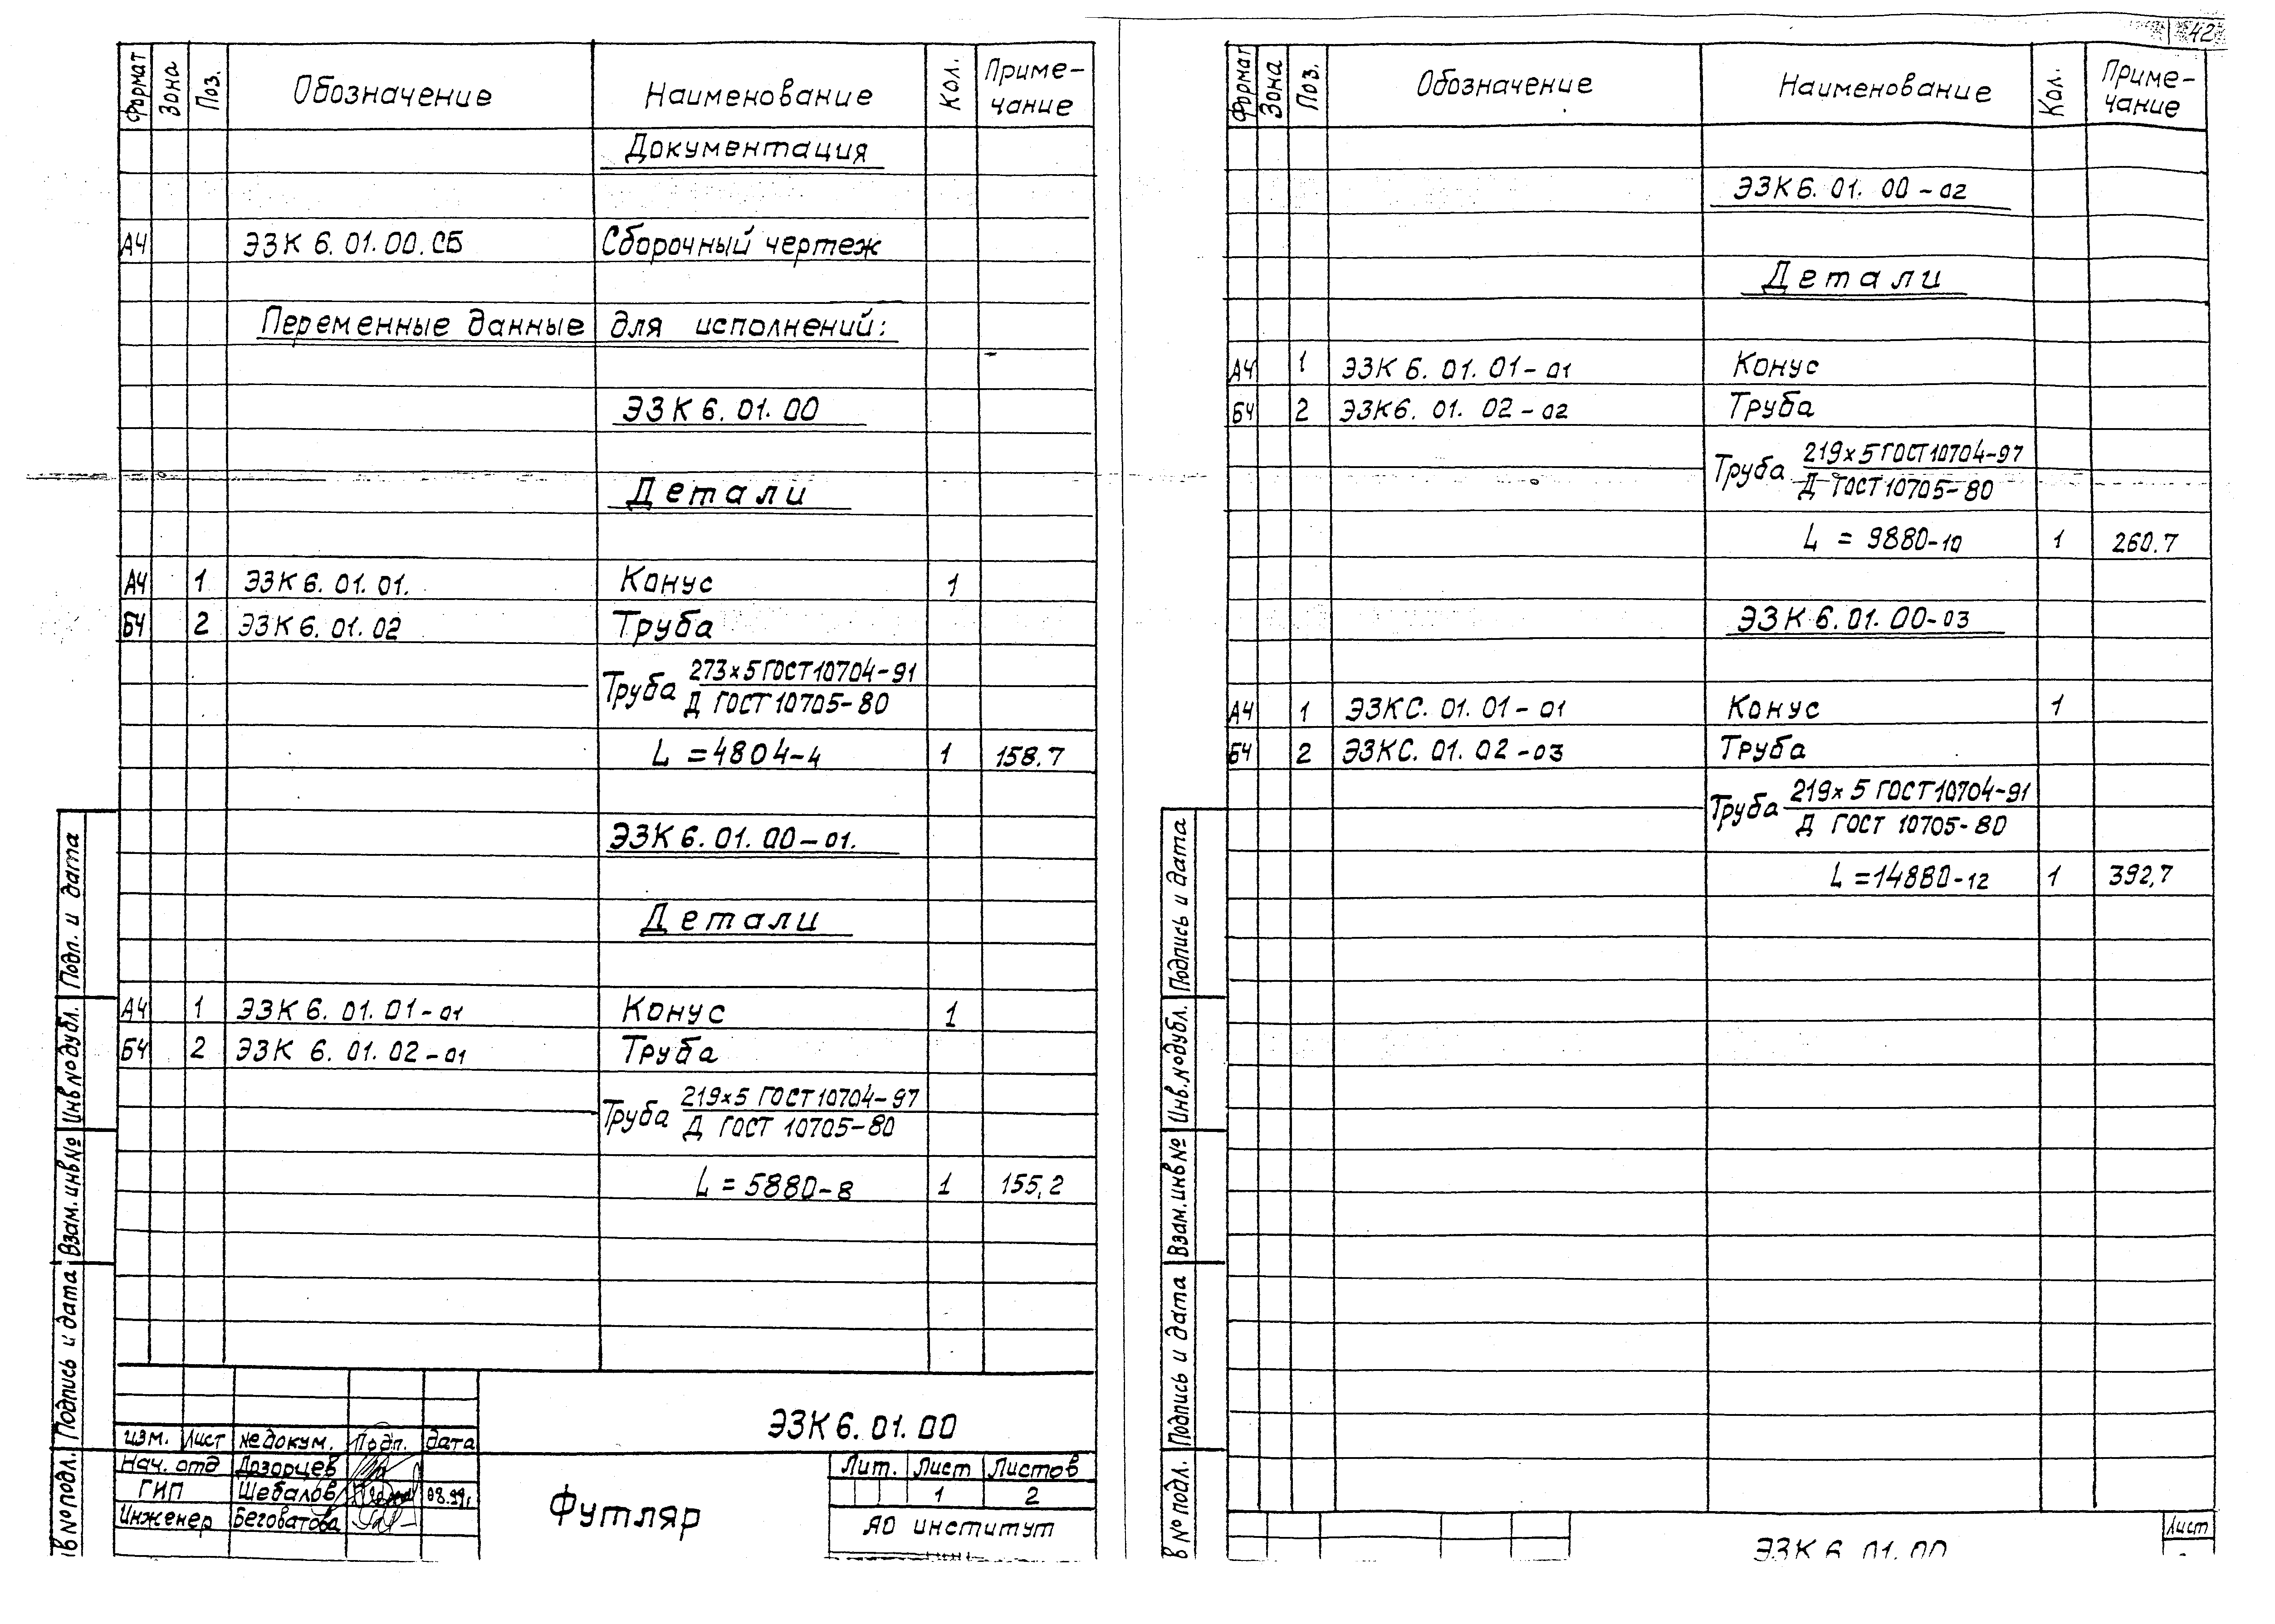 Формат Зона Поз. Обозначение Наименование Кол. Приме-
чание
Документация
А4 ЭЗК 6.01.00.СБ Сборочный чертеж
Переменные данные для исполнений:
ЭЗК 6.01.00
Детали
А4 1 ЭЗК 6.01.01. Конус 1
БЧ 2 ЭЗК 6.01.02 Труба
Труба 273х5 ГОСТ 10704-91
Д ГОСТ 10705-80
L = 4804-4 1 158.7
ЭЗК 6.01.00-01.
Детали
А4 1 ЭЗК 6.01.01-01 Конус 1
БЧ 2 ЭЗК 6.01.02-01 Труба
Труба 219х5 ГОСТ 10704-97
Д ГОСТ 10705-80
L = 5880-8 1 155,2
Подп. и дата
Инв № дубл.
Взам. инв №
Подпись и дата
в № подл.
ЭЗК 6.01.00
изм. Лист № докум. Подп. дата
Нач. отд Дозорцев
ГИП Шебалов 08.99г.
Инженер Беговатова
Футляр
Лит. Лист Листов
1 2
АО институт
42
Формат Зона Поз. Обозначение Наименование Кол. Приме-
чание
ЭЗК 6.01.00-02
Детали
А4 1 ЭЗК 6.01.01-01 Конус
БЧ 2 ЭЗК 6.01.02-02 Труба
Труба 219х5 ГОСТ 10704-97
Д ГОСТ 10705-80
L = 9880-10 1 260.7
ЭЗК 6.01.00-03
А4 1 ЭЗКС.01.01-01 Конус 1
БЧ 2 ЭЗКС.01.02-03 Труба
Труба 219х5 ГОСТ 10704-91
Д ГОСТ 10705-80
L = 14880-12 1 392,7
Подпись и дата
Инв. № дубл.
Взам. инв №
Подпись и дата
в № подл.
ЭЗК 6.01.00
Лист